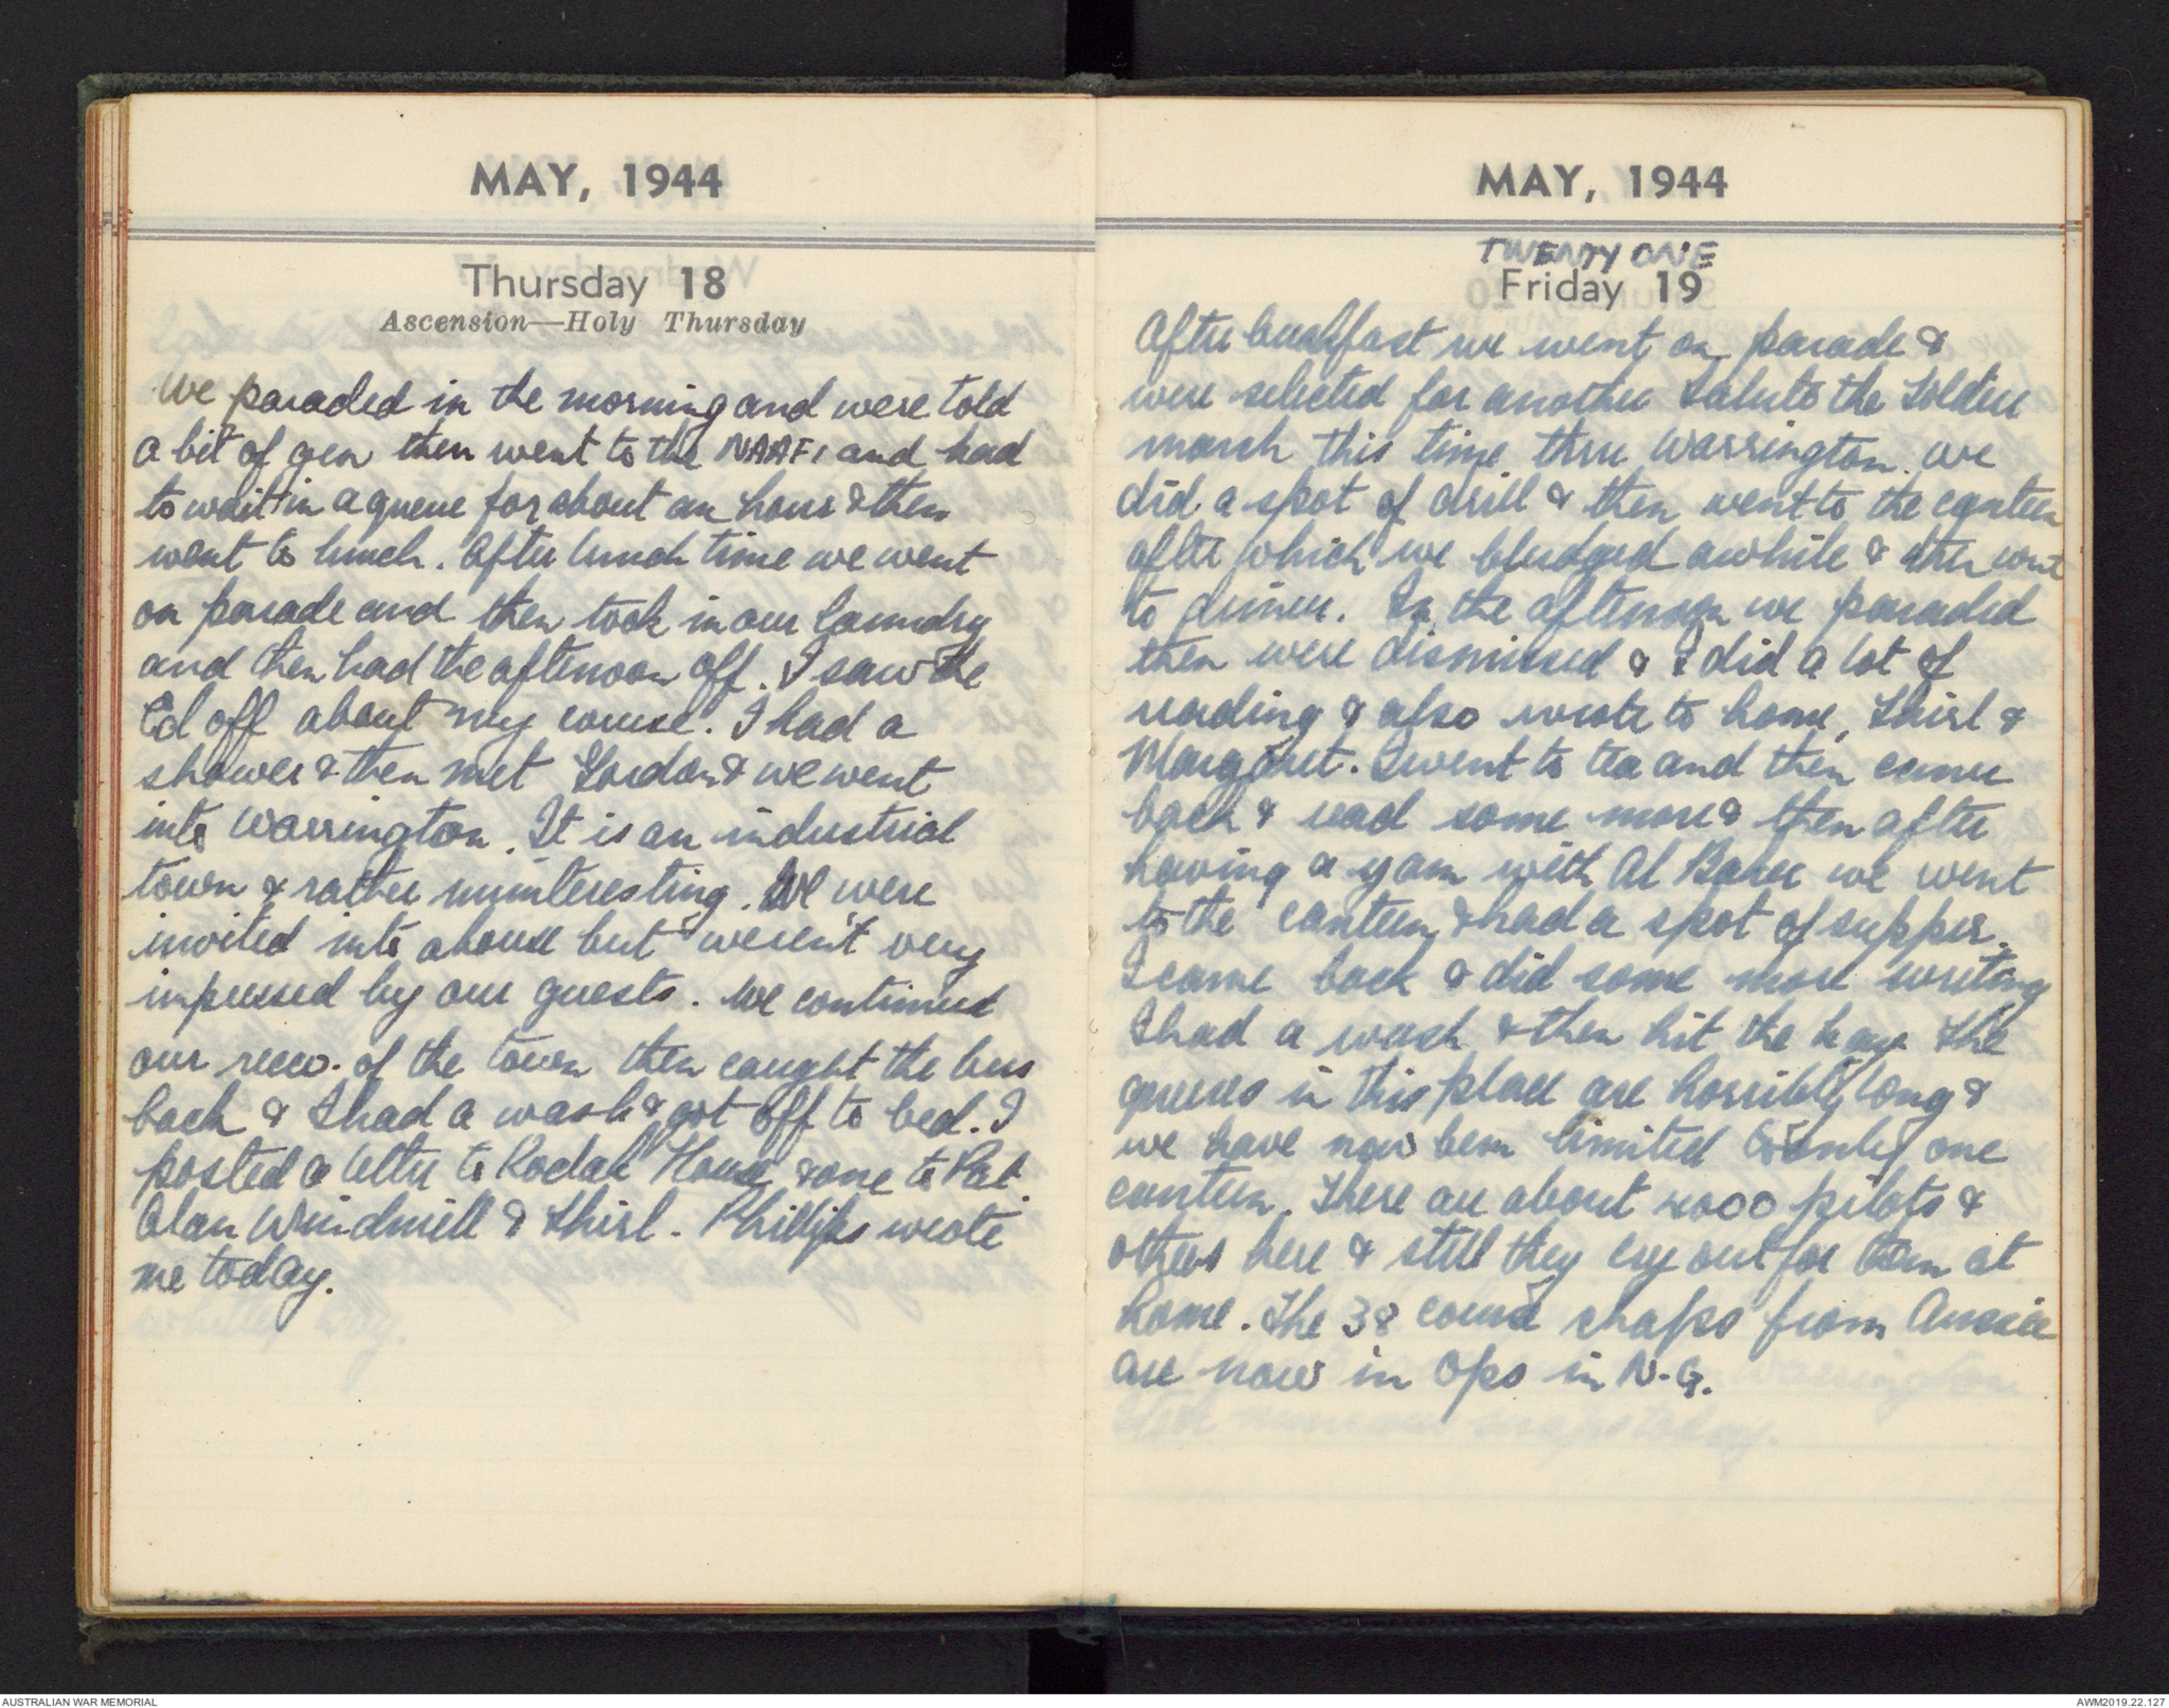 MAY, 1944
Thursday 18
Ascension—Holy Thursday
We paraded in the morning and were told
a bit of gen then went to the NAAFI and had
to wait in a queue for about an hour & then
went to lunch. After lunch time we went
on parade and then took in our laundry
and then had the afternoon off. I saw the
Ed off about my course. I had a
shower & then met Gordon & we went
into Warrington. It is an industrial
town & rather uninteresting. We were
invited into a house but weren't very
impressed by our guests. We continued
our recco. of the town then caught the bus
back & I had a wash & got off to bed. I
posted a letter to Kodak House & one to Pat.
Alan Windmill & Shirl. Phillips wrote
me today.
MAY, 1944
TWENTY ONE
Friday 19
After breakfast we went on parade &
were selected for another Salute the Soldier
march this time thru Warrington. We
did a spot of drill & then went to the canteen
after which we bludged awhile & then went
to dinner. In the afternoon we paraded
then were dismissed & I did a lot of
reading & also wrote to home, Shirl &
Margaret. I went to tea and then came
back & read some more & then after
having a yarn with Al we went
to the canteen & had a spot of supper.
I came back & did some more writing
I had a wash & then hit the hay. The
queues in this place are horribly long &
we have now been limited to only one
canteen. There are about 4000 pilots &
others here & still they cry out for them at
home. The 38 course chaps from Aussie
are now in Ops in N.G.
AUSTRALIAN WAR MEMORIAL
AWM2019.22.127